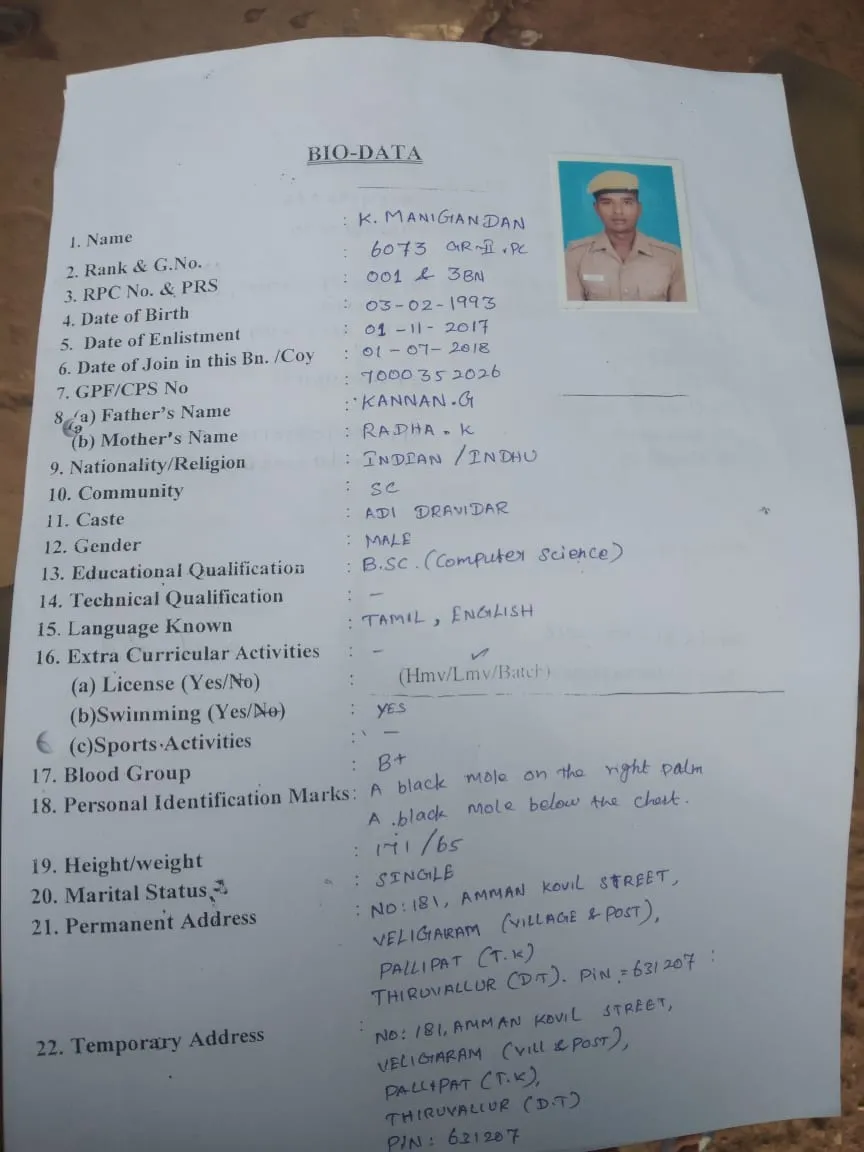 BIO-DATA
1. Name : K. MANIGANDAN
2. Rank & G.No. : 6073 GR-II .PC
3. RPC No. & PRS : 001 & 3BN
4. Date of Birth : 03-02-1993
5. Date of Enlistment : 01-11-2017
6. Date of Join in this Bn. /Coy : 01-07-2018
7. GPF/CPS No : 7000352026
8. (a) Father's Name : KANNAN.G
(b) Mother's Name : RADHA.K
9. Nationality/Religion : INDIAN /INDHU
10. Community : SC
11. Caste : ADI DRAVIDAR
12. Gender : MALE
13. Educational Qualification : B.SC.(Computer Science)
14. Technical Qualification : -
15. Language Known : TAMIL, ENGLISH
16. Extra Curricular Activities : -
(a) License (Yes/No) : (Hmv/Lmv/Batch)
(b)Swimming (Yes/No) : YES
(c)Sports Activities : -
17. Blood Group : B+
18. Personal Identification Marks: A black mole on the right palm
A black mole below the chest.
19. Height/weight : 171/65
20. Marital Status : SINGLE
21. Permanent Address : NO:181, AMMAN KOVIL STREET,
VELIGARAM (VILLAGE & POST),
PALLIPAT (T.K)
THIRUVALLUR (D.T). PIN:=631207:
22. Temporary Address : NO: 181, AMMAN KOVIL STREET,
VELIGARAM (VILL & POST),
PALLIPAT (T.K),
THIRUVALLUR (D.T)
PIN: 631207